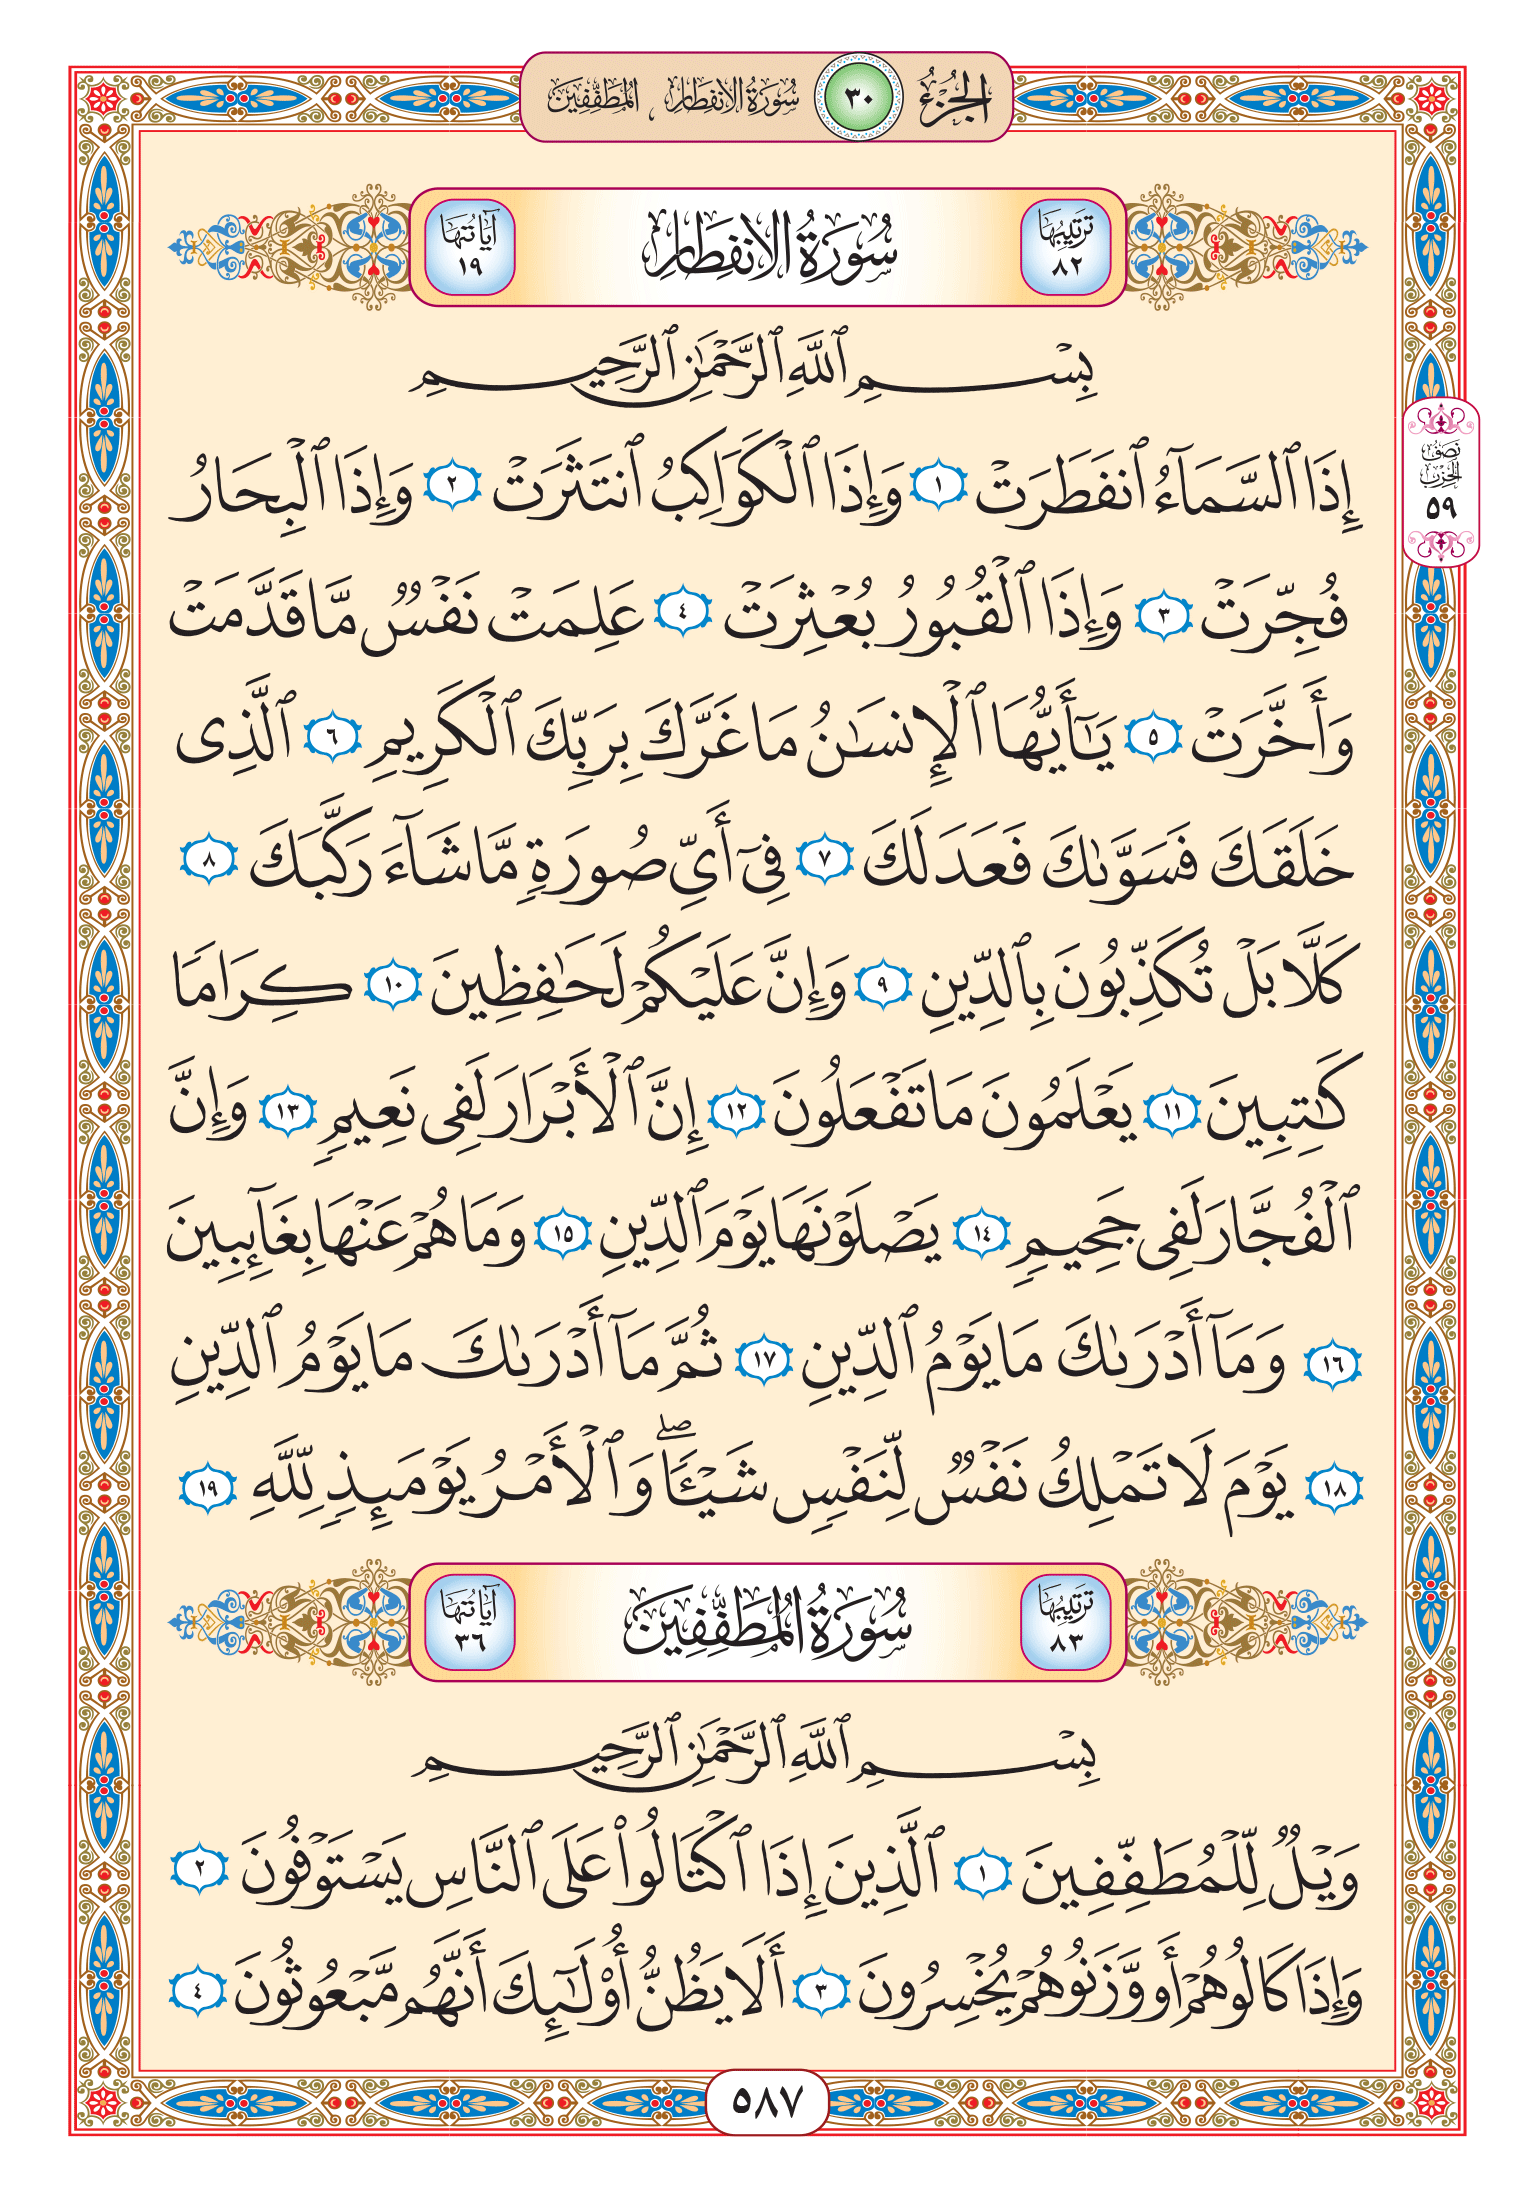 الجزء ٣٠ سورة الانفطار ، المطففين
ترتيبها ٨٢ سورة الانفطار آياتها ١٩
بِسْمِ ٱللَّهِ ٱلرَّحْمَٰنِ ٱلرَّحِيمِ
إِذَا ٱلسَّمَآءُ ٱنفَطَرَتْ ١ وَإِذَا ٱلْكَوَاكِبُ ٱنتَثَرَتْ ٢ وَإِذَا ٱلْبِحَارُ
نصف الحزب ٥٩
فُجِّرَتْ ٣ وَإِذَا ٱلْقُبُورُ بُعْثِرَتْ ٤ عَلِمَتْ نَفْسٌ مَّا قَدَّمَتْ
وَأَخَّرَتْ ٥ يَٰٓأَيُّهَا ٱلْإِنسَٰنُ مَا غَرَّكَ بِرَبِّكَ ٱلْكَرِيمِ ٦ ٱلَّذِى
خَلَقَكَ فَسَوَّىٰكَ فَعَدَلَكَ ٧ فِىٓ أَىِّ صُورَةٍ مَّا شَآءَ رَكَّبَكَ ٨
كَلَّا بَلْ تُكَذِّبُونَ بِٱلدِّينِ ٩ وَإِنَّ عَلَيْكُمْ لَحَٰفِظِينَ ١٠ كِرَامًا
كَٰتِبِينَ ١١ يَعْلَمُونَ مَا تَفْعَلُونَ ١٢ إِنَّ ٱلْأَبْرَارَ لَفِى نَعِيمٍ ١٣ وَإِنَّ
ٱلْفُجَّارَ لَفِى جَحِيمٍ ١٤ يَصْلَوْنَهَا يَوْمَ ٱلدِّينِ ١٥ وَمَا هُمْ عَنْهَا بِغَآئِبِينَ
١٦ وَمَآ أَدْرَىٰكَ مَا يَوْمُ ٱلدِّينِ ١٧ ثُمَّ مَآ أَدْرَىٰكَ مَا يَوْمُ ٱلدِّينِ
١٨ يَوْمَ لَا تَمْلِكُ نَفْسٌ لِّنَفْسٍ شَيْـًٔا ۖ وَٱلْأَمْرُ يَوْمَئِذٍ لِّلَّهِ ١٩
ترتيبها ٨٣ سورة المطففين آياتها ٣٦
بِسْمِ ٱللَّهِ ٱلرَّحْمَٰنِ ٱلرَّحِيمِ
وَيْلٌ لِّلْمُطَفِّفِينَ ١ ٱلَّذِينَ إِذَا ٱكْتَالُوا۟ عَلَى ٱلنَّاسِ يَسْتَوْفُونَ ٢
وَإِذَا كَالُوهُمْ أَو وَّزَنُوهُمْ يُخْسِرُونَ ٣ أَلَا يَظُنُّ أُو۟لَٰٓئِكَ أَنَّهُم مَّبْعُوثُونَ ٤
٥٨٧